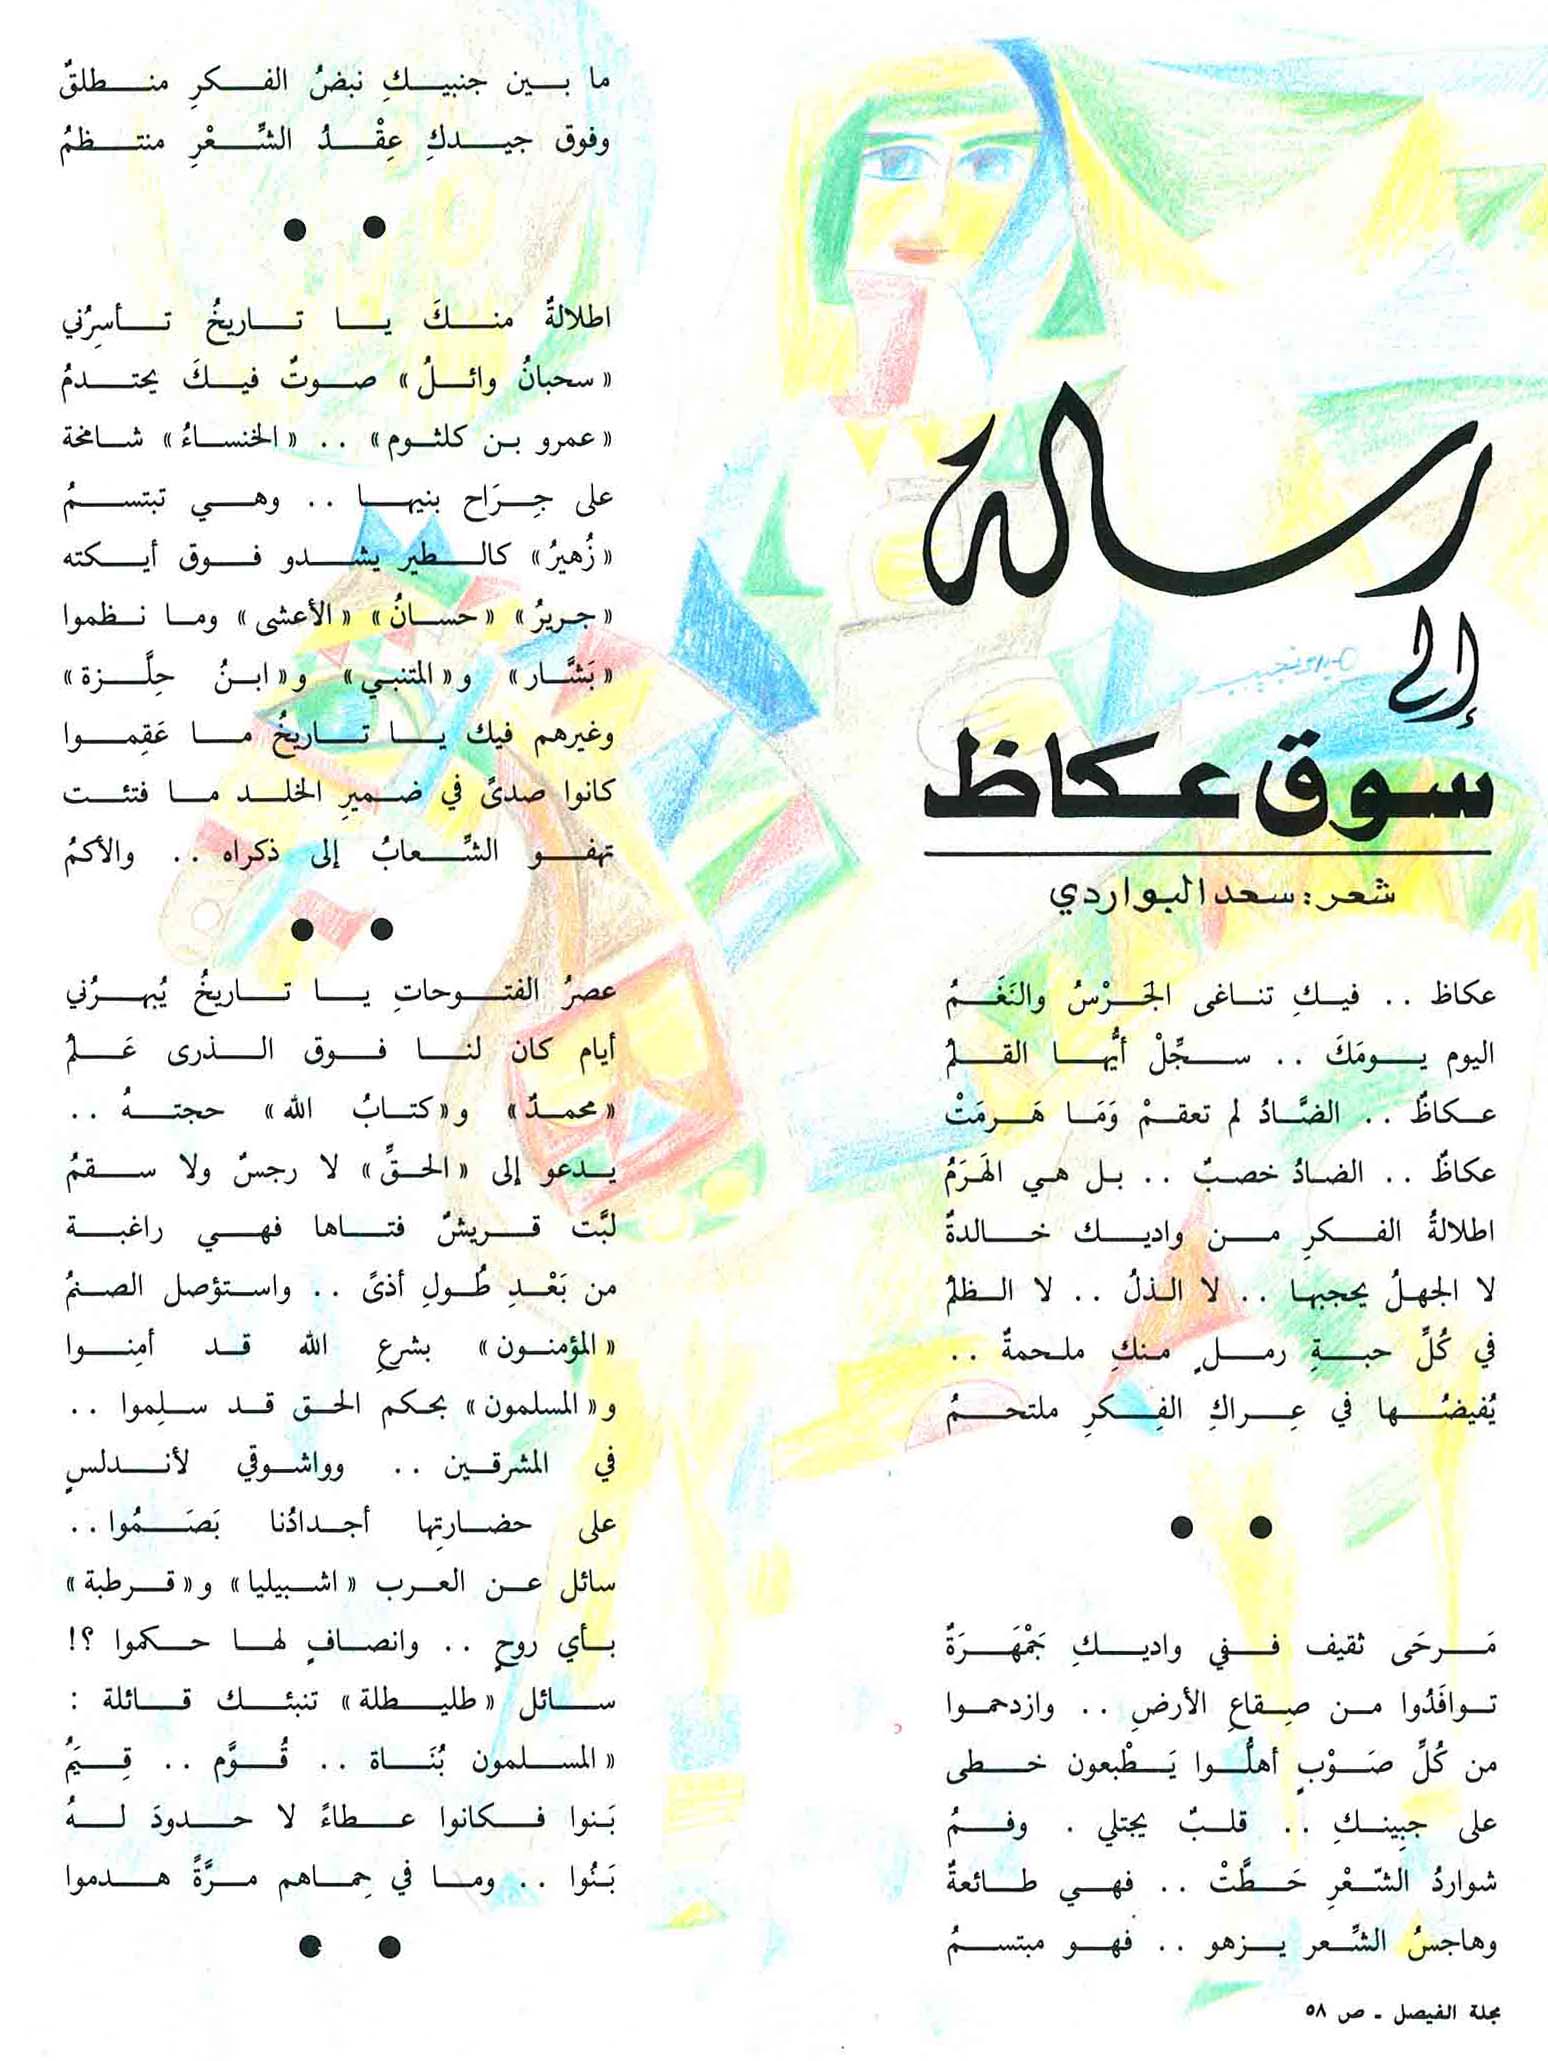 رسالة
إلى
سوق عكاظ
شعر : سعد البواردي
عكاظ . . فيكِ تناغى الجَرْسُ والنَغَمُ
اليوم يومَكَ . . سجِّلْ أيُّها القلمُ
عكاظٌ . . الضَّادُ لم تعقمْ وَمَا هَرِمَتْ
عكاظٌ . . الضادُ خصبٌ . . بل هي الهَرَمُ
اطلالةُ الفكرِ من واديك خالدةٌ
لا الجهلُ يحجبها . . لا الذلُ . . لا الظلمُ
في كُلِّ حبةِ رملٍ منكِ ملحمةٌ . .
يُفيضُها في عِراكِ الفِكرِ ملتحمُ
مَرحَى ثقيف ففي واديكِ جَمْهَرَةٌ
توافَدُوا من صِقاعِ الأرضِ . . وازدحموا
من كُلِّ صَوْبٍ أهلُّوا يَطْبعون خطى
على جبِينكِ . . قلبٌ يجتلي . وفمُ
شواردُ الشّعْرِ حَطَّتْ . . فهي طائعةٌ
وهاجسُ الشِّعر يزهو . . فهو مبتسمُ
ما بين جنبيكِ نبضُ الفكرِ منطلقٌ
وفوق جيدكِ عِقْدُ الشِّعْرِ منتظمُ
اطلالةٌ منكَ يا تاريخُ تأسِرُني
«سحبانُ وائلُ» صوتٌ فيكَ يحتدمُ
«عمرو بن كلثوم» . . «الخنساءُ» شامخة
على جِرَاح بنيها . . وهي تبتسمُ
«زُهيرُ» كالطير يشدو فوق أيكته
«جريرُ» «حسانُ» «الأعشى» وما نظموا
«بَشَّار» و«المتنبي» و«ابنُ حِلَّزة»
وغيرهم فيك يا تاريخُ ما عَقِموا
كانوا صدىً في ضميرِ الخلد ما فتئت
تهفو الشِّعابُ إلى ذكراه . . والأكمُ
عصرُ الفتوحاتِ يا تاريخُ يُبهرُني
أيام كان لنا فوق الذرى عَلمُ
«محمدٌ» و«كتابُ الله» حجتهُ . .
يدعو إلى «الحقِّ» لا رجسٌ ولا سقمُ
لبَّت قريشٌ فتاها فهي راغبة
من بَعْدِ طُولِ أذىً . . واستؤصل الصنمُ
«المؤمنون» بشرعِ الله قد أمِنوا
و«المسلمون» بحكم الحق قد سلِموا . .
في المشرقين . . وواشوقي لأندلسٍ
على حضارتِها أجدادُنا بَصَمُوا . .
سائل عن العرب «اشبيليا» و«قرطبة»
بأي روحٍ . . وانصافٍ لها حكموا ؟!
سائل «طليطلة» تنبئك قائلة :
«المسلمون بُنَاة . . قُوَّم . . قِيَمُ
بَنوا فكانوا عطاءً لا حدودَ لهُ
بَنُوا . . وما في حِماهم مرَّةً هدموا
مجلة الفيصل ـ ص ٥٨